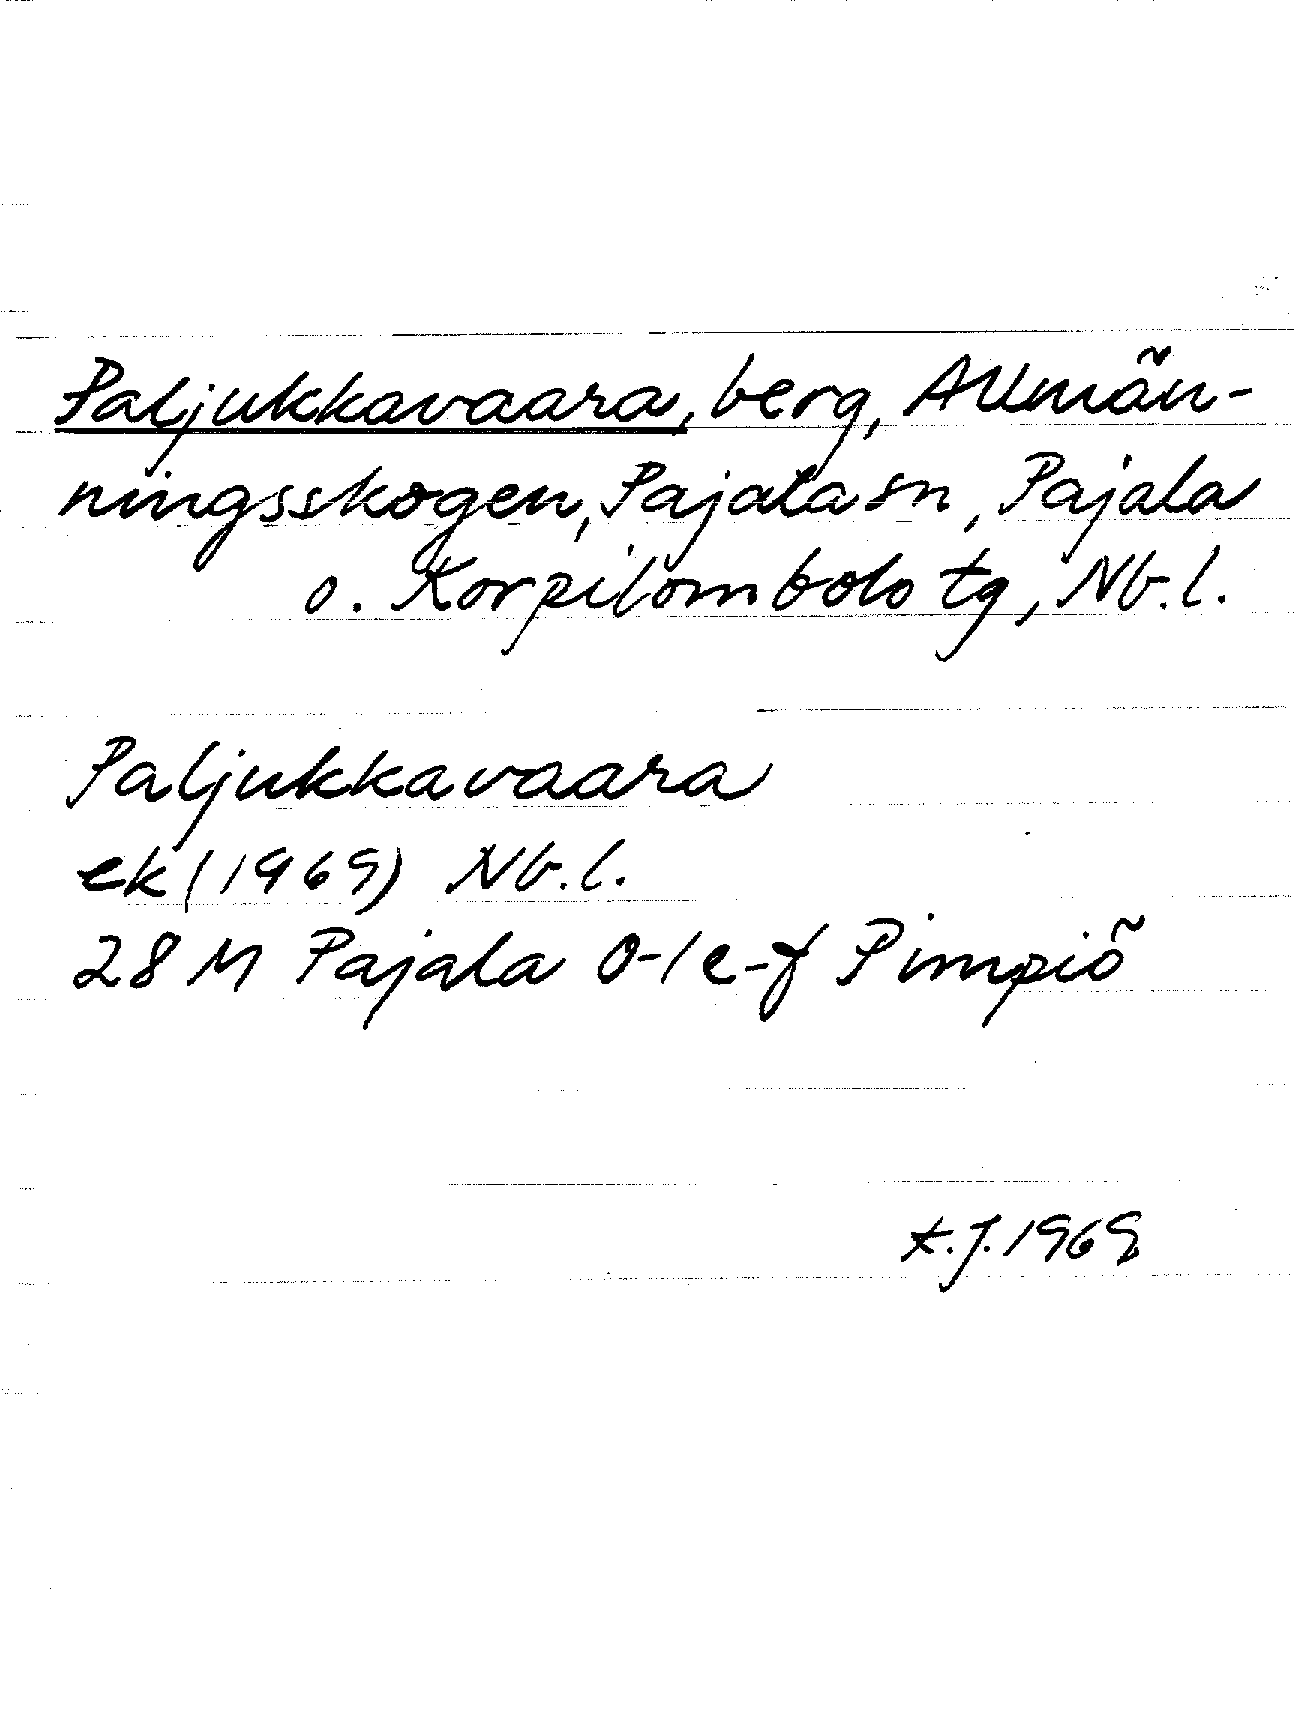 Paljukkavaara, berg, Allmän-
ningsskogen, Pajala sn, Pajala
o. Korpilombolo tg, Nb. l.
Paljukkavaara
ek (1969) Nb. l.
28 M Pajala 0-1 e-f Pimpiö
K.J. 1969